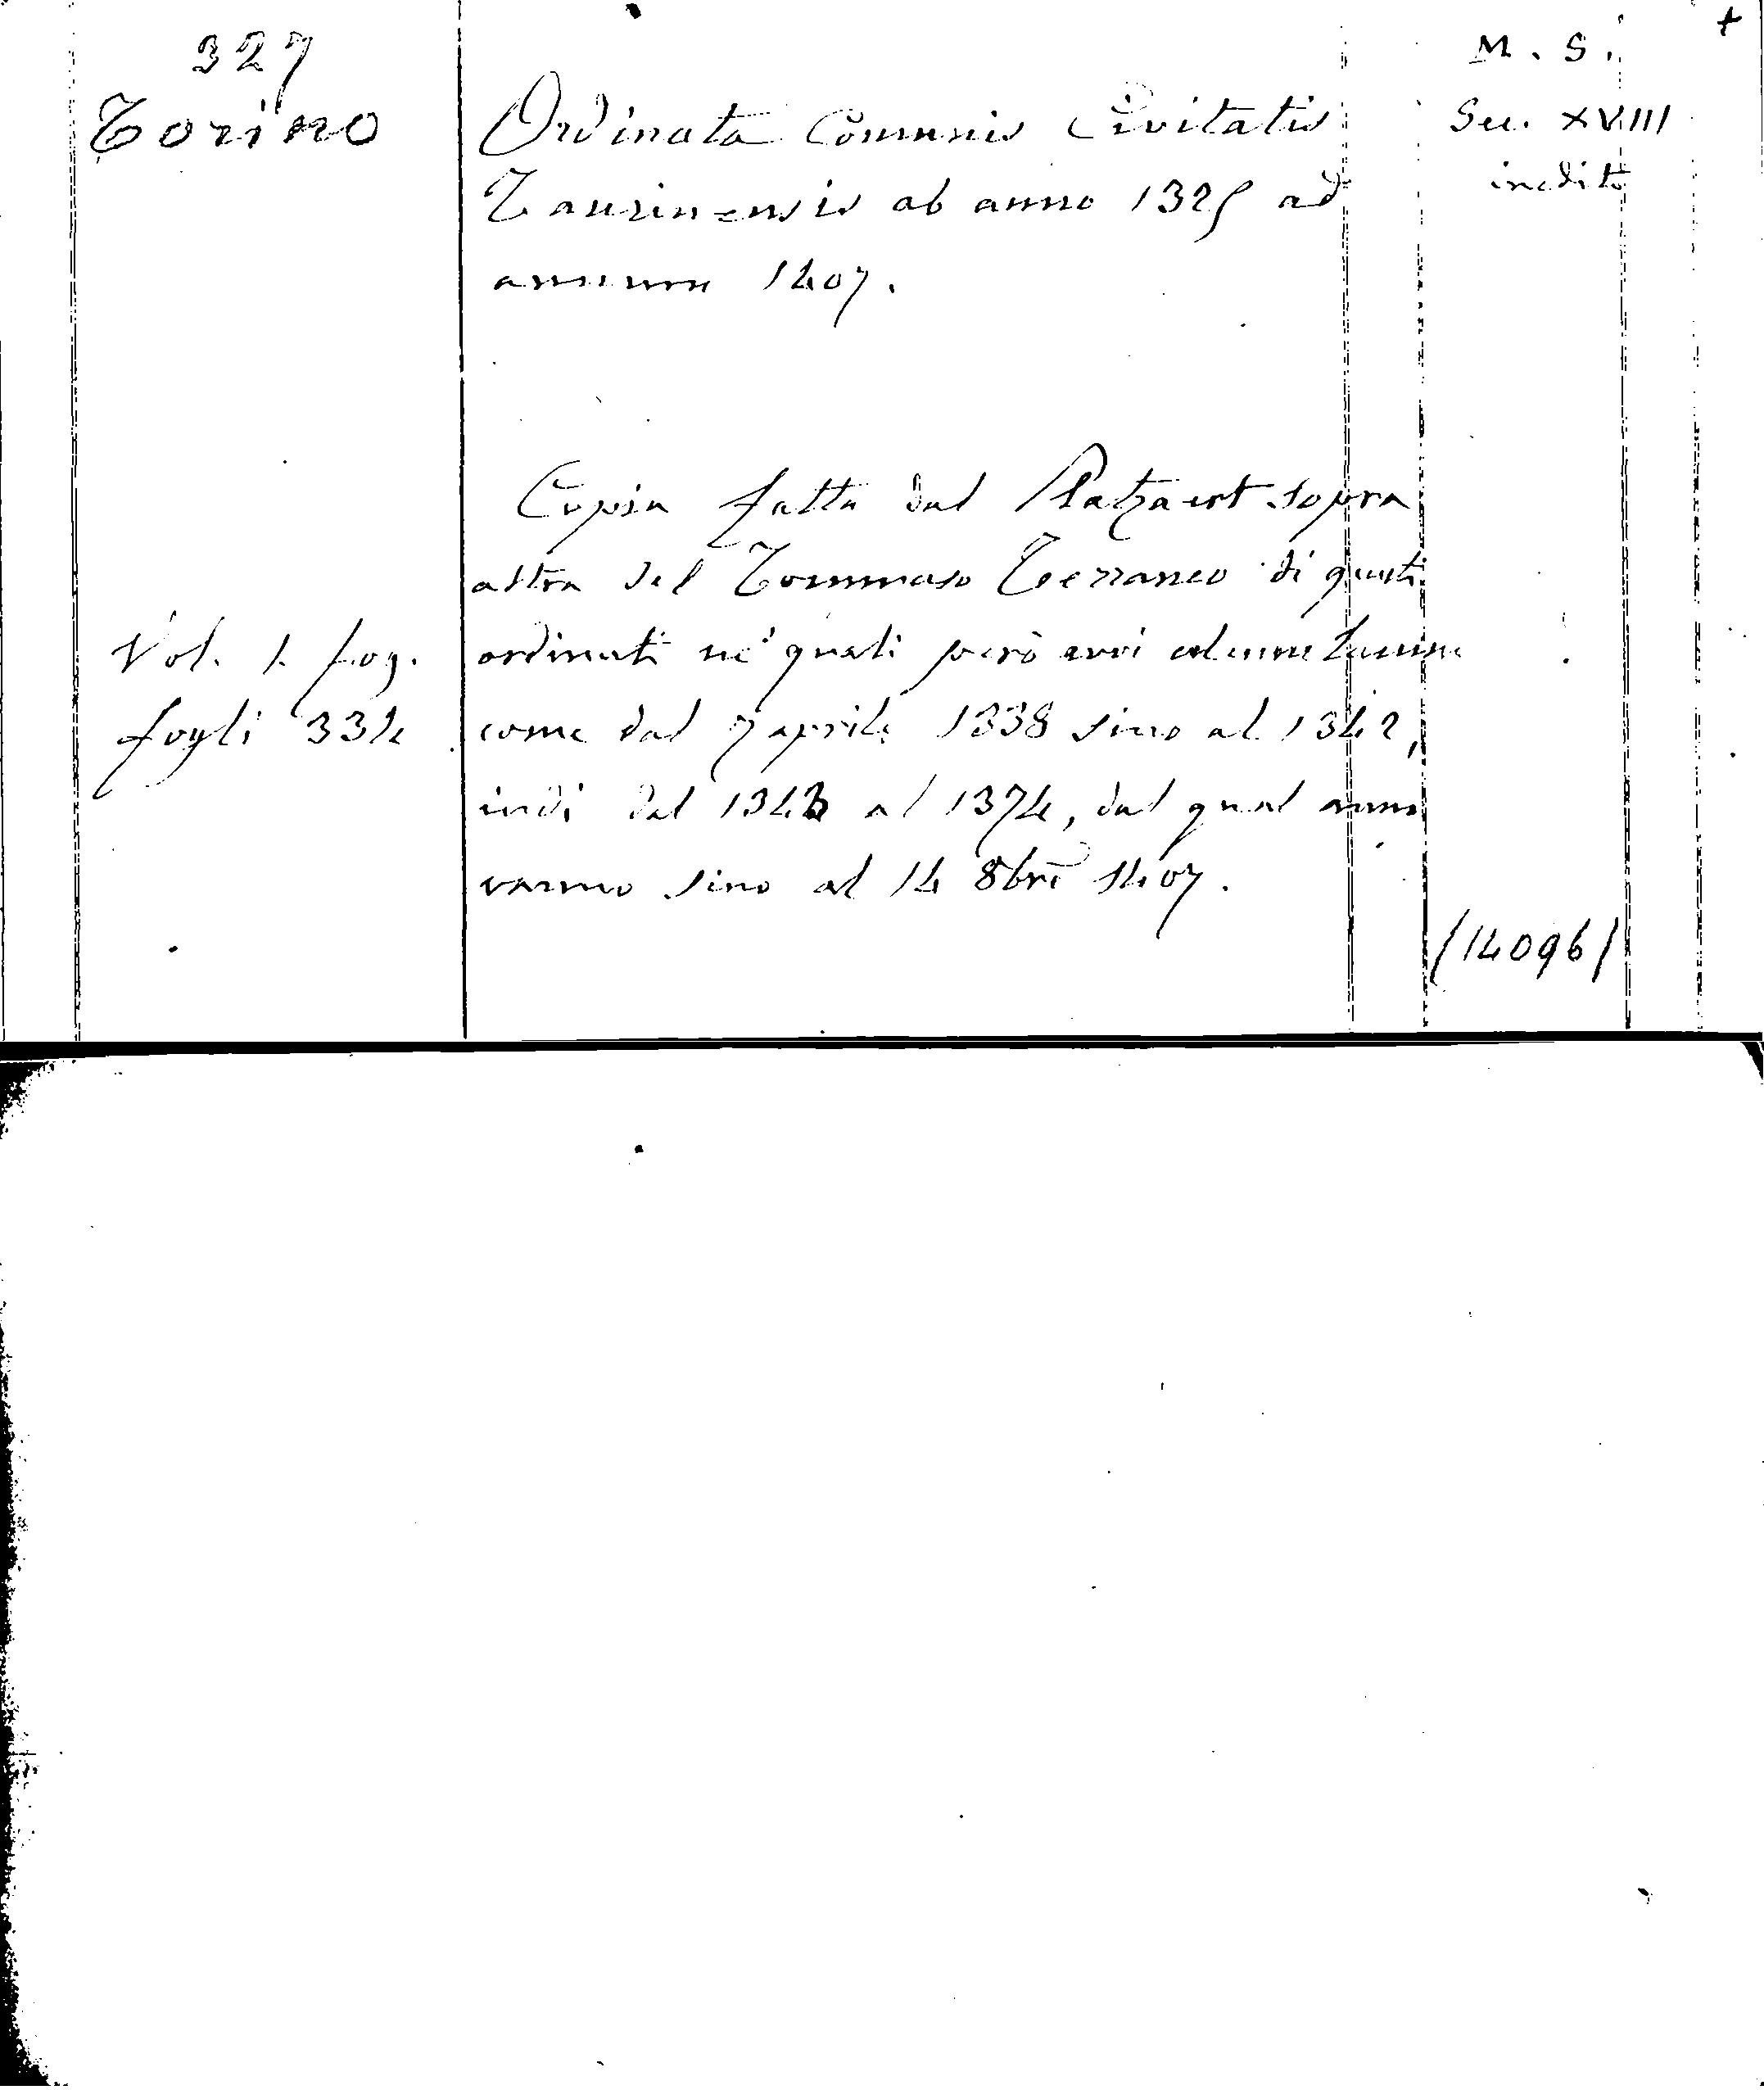 327
Torino
Ordinata Comunis Civitatis
Taurinensis ab anno 1325 ad
annum 1407.
M. S.
Sec. XVIII
inedito
+
Copia fatta dal Platzaert sopra
altra del Tommaso Terraneo di questi
ordinati ne' quali però avvi alcune lacune
come dal 7 aprile 1338 sino al 1342,
indi dal 1343 al 1374, dal qual anno
vanno sino al 14 8bre 1407.
Vol. 1. fog.
fogli 334
(14096)